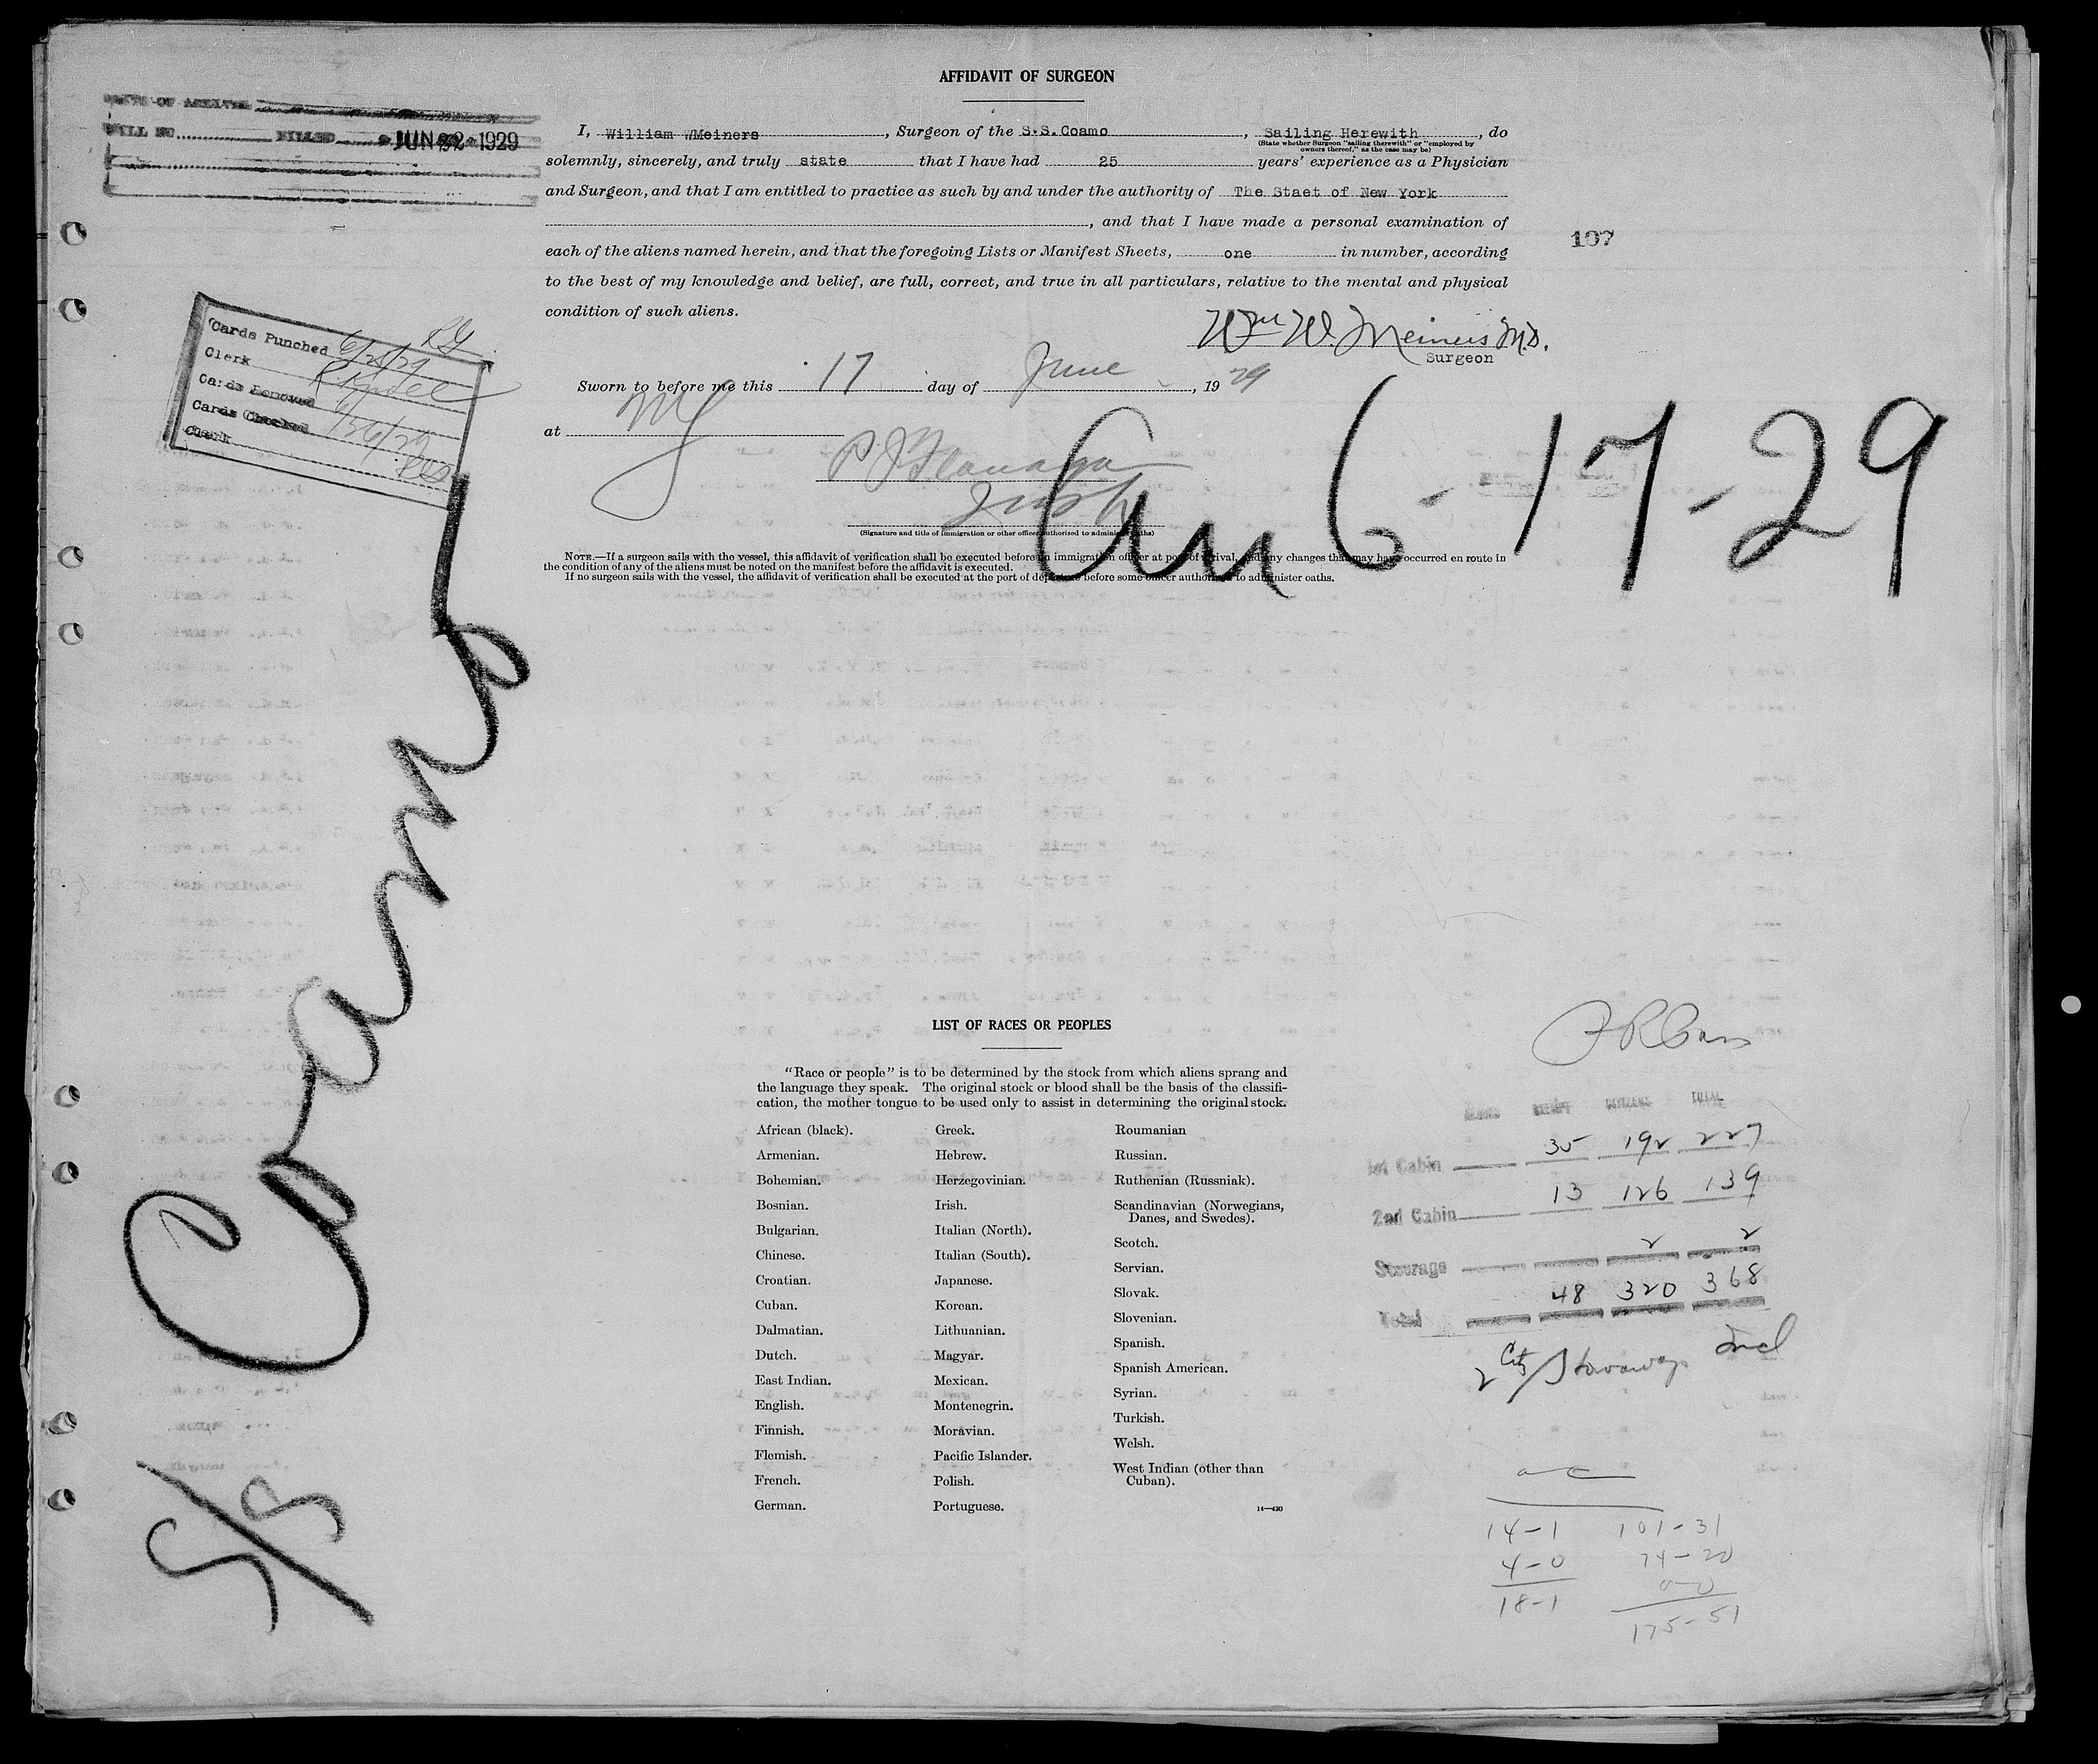 AFFIDAVIT OF SURGEON
BILL NO. BILLED JUN 22 1929
I, William WMeiners, Surgeon of the S.S.Coamo, Sailing Herewith, do
(State whether Surgeon "sailing therewith" or "employed by
owners thereof," as the case may be)
solemnly, sincerely, and truly state that I have had 25 years' experience as a Physician
and Surgeon, and that I am entitled to practice as such by and under the authority of The Staet of New York
, and that I have made a personal examination of
107
each of the aliens named herein, and that the foregoing Lists or Manifest Sheets, one in number, according
to the best of my knowledge and belief, are full, correct, and true in all particulars, relative to the mental and physical
condition of such aliens.
Wm W. Meiners M.D.
Surgeon
Sworn to before me this 17 day of June, 1929
at NY
P J Flanagan
Insp
(Signature and title of immigration or other officer authorized to administer oaths)
Cards Punched 6/25/29
Clerk
Cards Removed
Cards Checked 6/26/29
Clerk
6-17-29
NOTE.—If a surgeon sails with the vessel, this affidavit of verification shall be executed before an immigration officer at port of arrival, and any changes that may have occurred en route in
the condition of any of the aliens must be noted on the manifest before the affidavit is executed.
If no surgeon sails with the vessel, the affidavit of verification shall be executed at the port of departure before some officer authorized to administer oaths.
S/S Coamo
LIST OF RACES OR PEOPLES
"Race or people" is to be determined by the stock from which aliens sprang and
the language they speak. The original stock or blood shall be the basis of the classifi-
cation, the mother tongue to be used only to assist in determining the original stock.
African (black).
Armenian.
Bohemian.
Bosnian.
Bulgarian.
Chinese.
Croatian.
Cuban.
Dalmatian.
Dutch.
East Indian.
English.
Finnish.
Flemish.
French.
German.
Greek.
Hebrew.
Herzegovinian.
Irish.
Italian (North).
Italian (South).
Japanese.
Korean.
Lithuanian.
Magyar.
Mexican.
Montenegrin.
Moravian.
Pacific Islander.
Polish.
Portuguese.
Roumanian
Russian.
Ruthenian (Russniak).
Scandinavian (Norwegians,
Danes, and Swedes).
Scotch.
Servian.
Slovak.
Slovenian.
Spanish.
Spanish American.
Syrian.
Turkish.
Welsh.
West Indian (other than
Cuban).
14—430
CITIZENS TOTAL
1st Cabin 35 192 227
2nd Cabin 13 126 139
Steerage 2 2
Total 48 320 368
2 Stowaways Incl
14-1 101-31
4-0 74-20
0-0
18-1 175-51